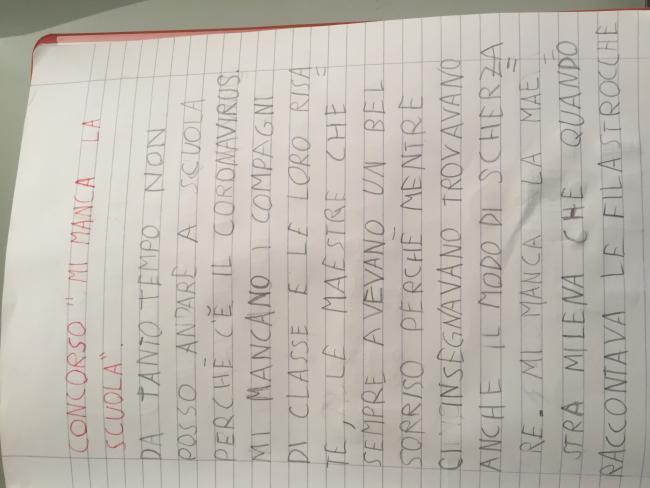 CONCORSO "MI MANCA LA
SCUOLA".
DA TANTO TEMPO NON
POSSO ANDARE A SCUOLA
PERCHÈ C'È IL CORONAVIRUS.
MI MANCANO I COMPAGNI
DI CLASSE E LE LORO RISA=
TE, LE MAESTRE CHE
SEMPRE AVEVANO UN BEL
SORRISO PERCHÈ MENTRE
CI INSEGNAVANO TROVAVANO
ANCHE IL MODO DI SCHERZA=
RE. MI MANCA LA MAE=
STRA MILENA CHE QUANDO
RACCONTAVA LE FILASTROCCHE